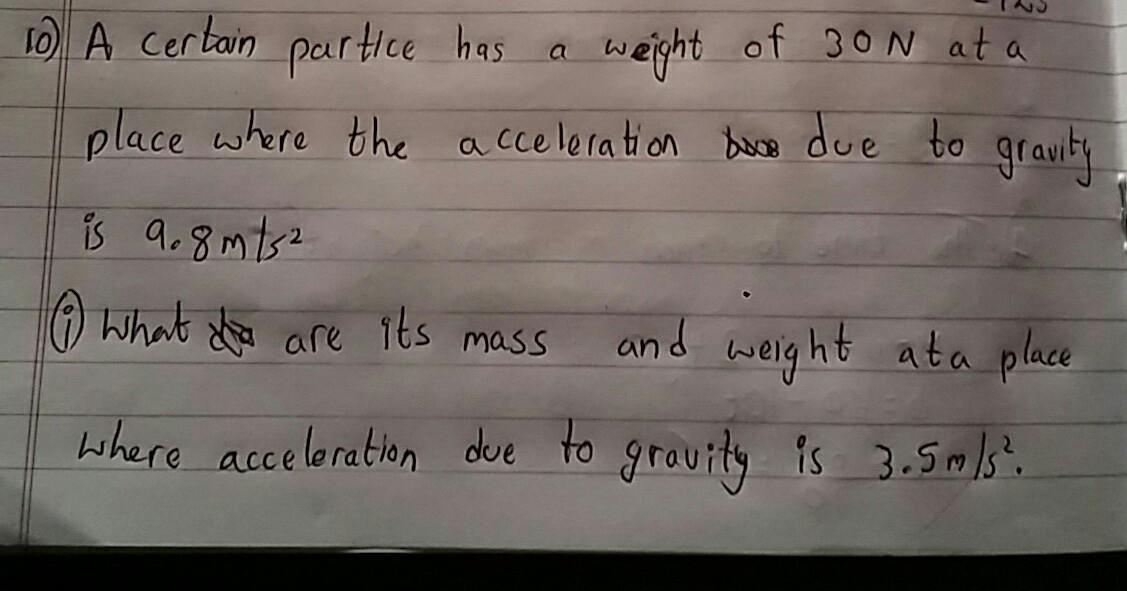 10) A certain partice has a weight of 30N at a
place where the acceleration due to gravity
is 9.8m/s²
(i) What are its mass and weight at a place
where acceleration due to gravity is 3.5m/s².